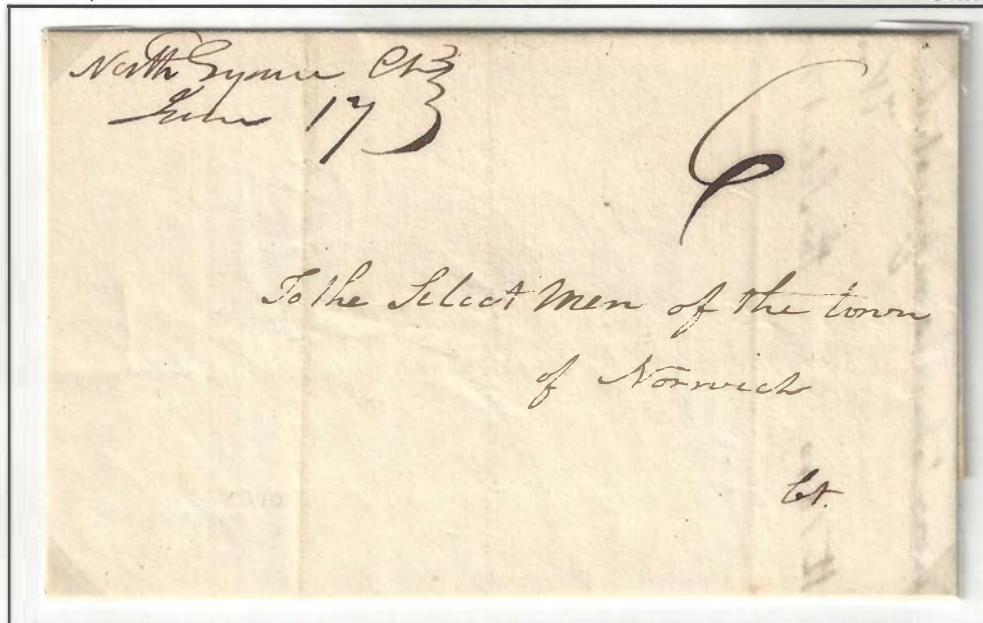 North Lyme Ct
June 17
6
To the Select Men of the town
of Norwich
Ct.